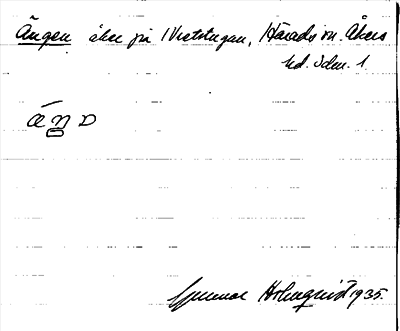 Ängen åker på Nretstugan, Härads sn. Åkers
hd. Sdm. 1.
áṉD
Gunnar Holmquist 1935.